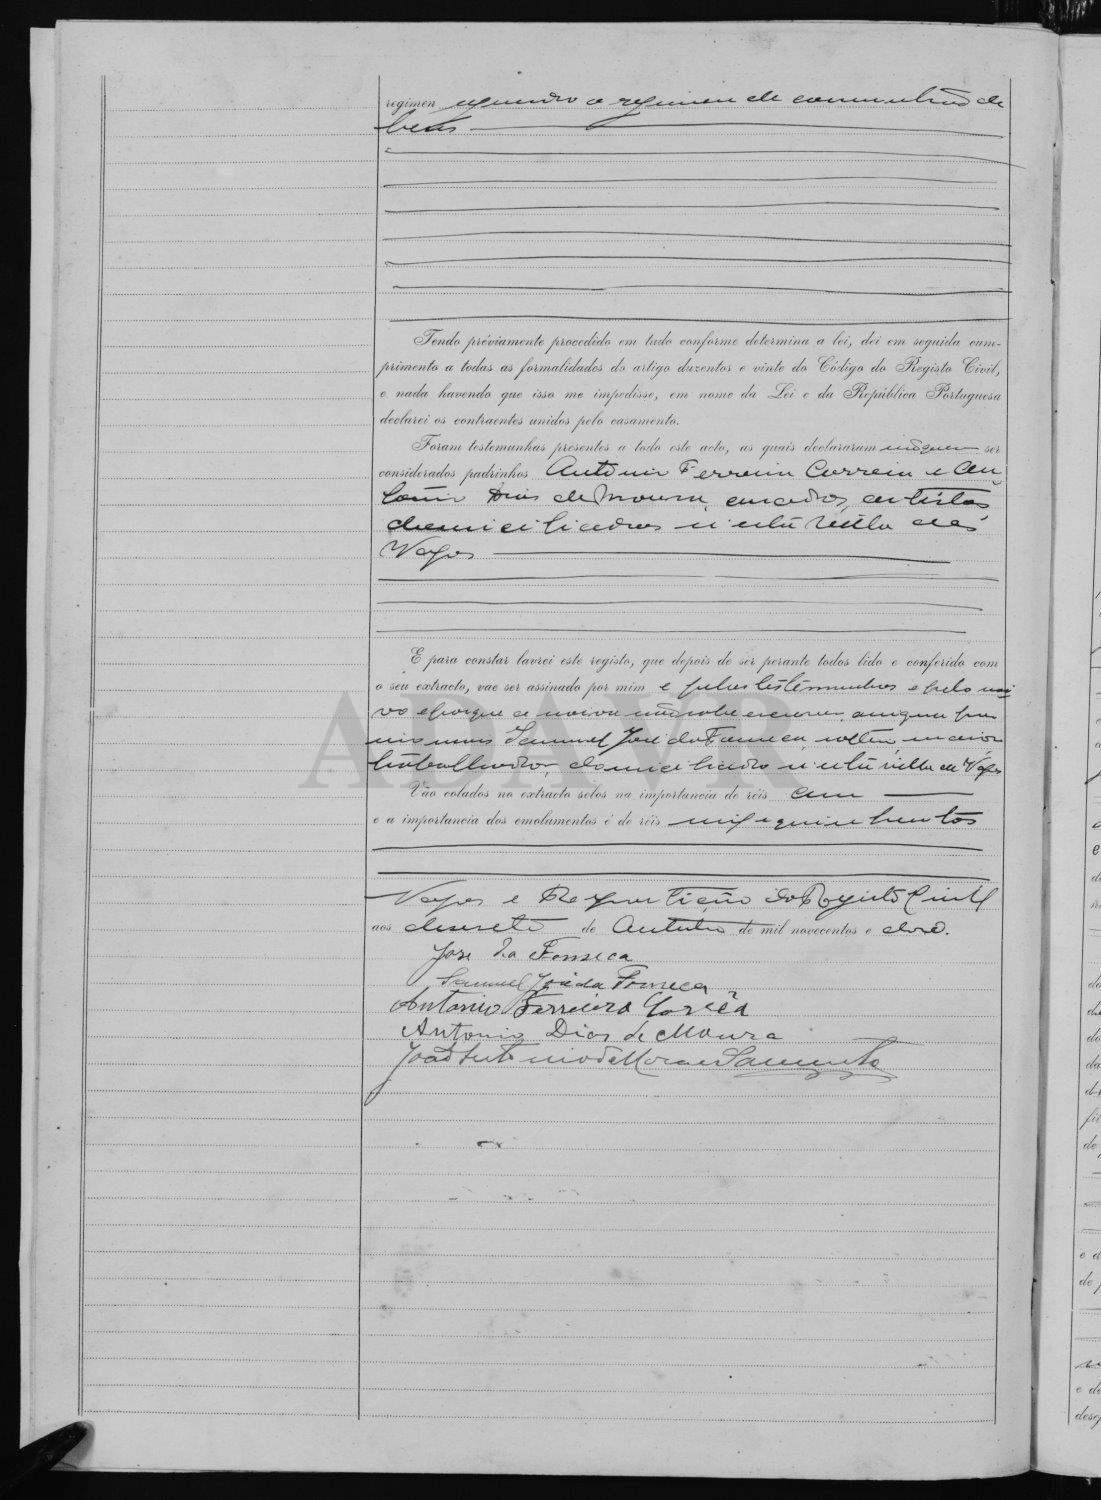 regimen segundo o regimen de communhão de
bens
Tendo préviamente procedido em tudo conforme determina a lei, dei em seguida cum-
primento a todas as formalidades do artigo duzentos e vinte do Código do Registo Civil,
e nada havendo que isso me impedisse, em nome da Lei e da República Portuguesa
declarei os contraentes unidos pelo casamento.
Foram testemunhas presentes a todo este acto, as quais declararam não querer ser
considerados padrinhos Antonio Ferreira Correia e An-
tonio Dias de Moura, casados, artistas
domiciliados n'esta villa de
Vagos
E para constar lavrei este registo, que depois de ser perante todos lido e conferido com
o seu extracto, vae ser assinado por mim e pelas testemunhas e pelo noi
vo e porque a noiva não sabe escrever, assigna por
Samuel José da Fonseca, solteiro, maior
trabalhador, domiciliado n'esta villa de Vagos
Vão colados no extracto selos na importancia de réis cem
e a importancia dos emolumentos é de réis mil e quinhentos
Vagos e Repartição do Registo Civil
aos dezesete de Outubro de mil novecentos e doze.
José da Fonseca
Samuel José da Fonseca
Antonio Ferreira Correia
Antonio Dias de Moura
João Antonio de Moraes Sarmento
ADAVR